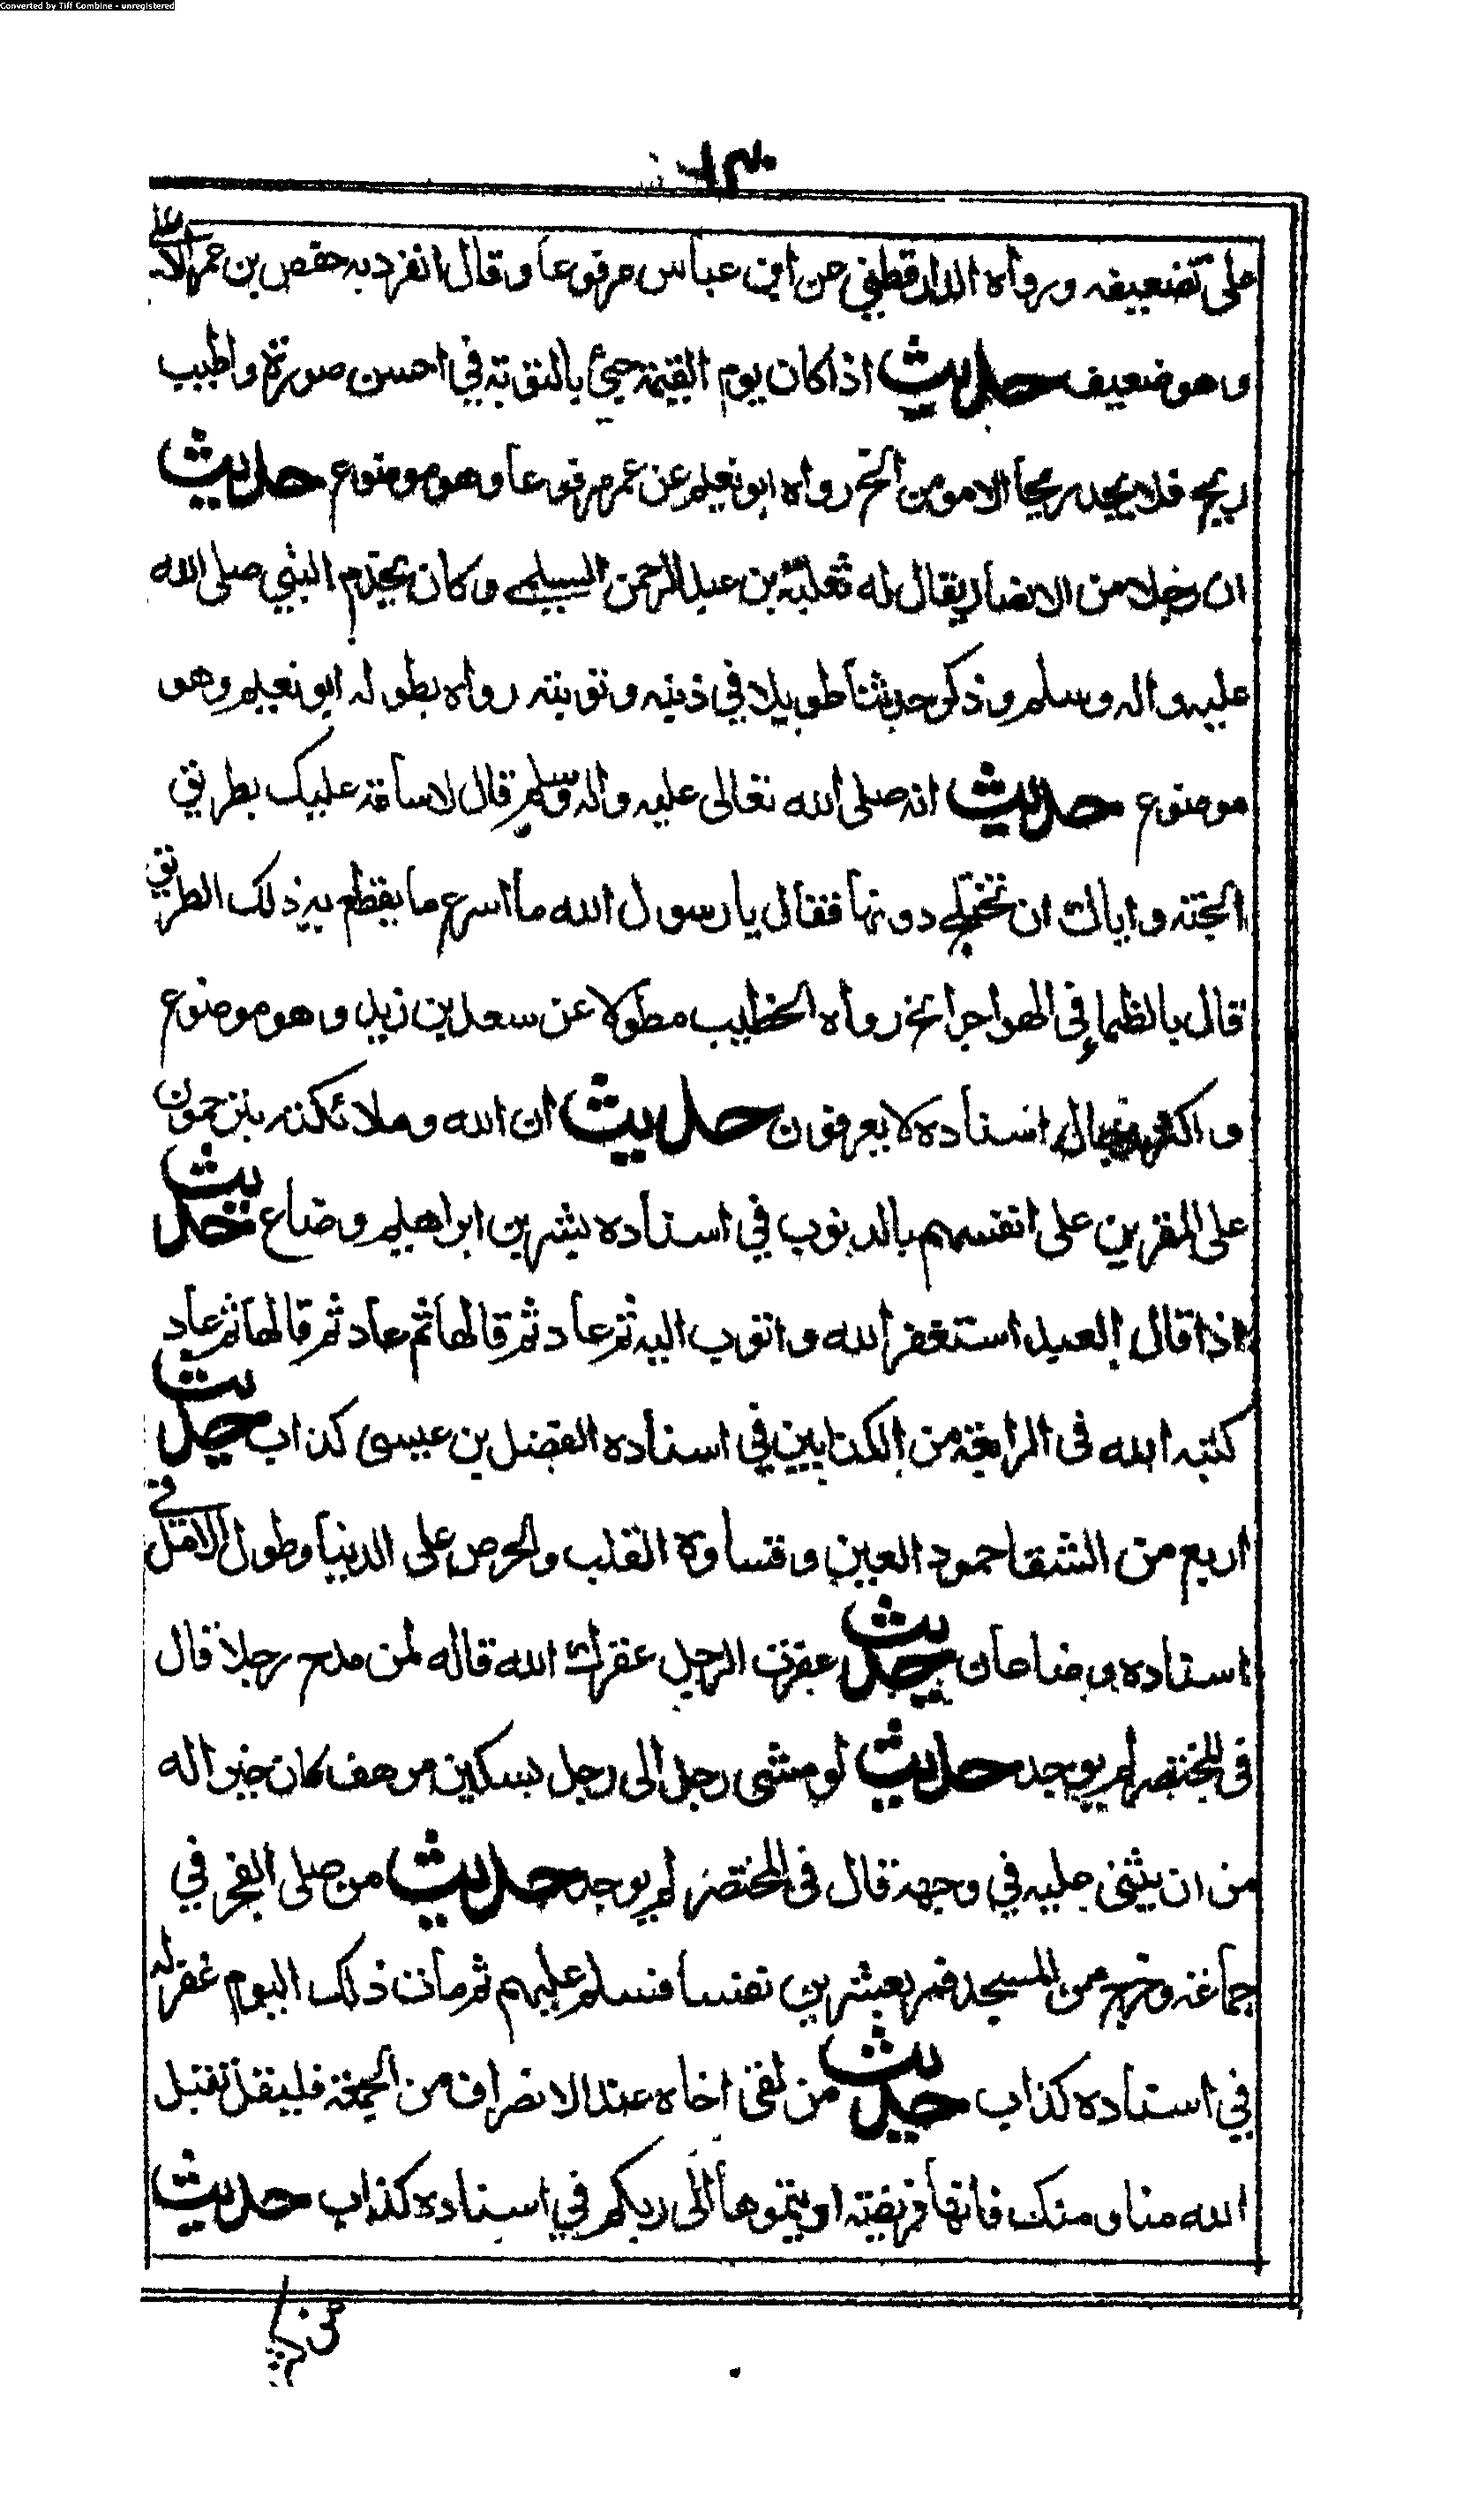 Converted by Tiff Combine - unregistered
على تضعيفه ورواه الدارقطني عن ابن عباس مرفوعا وقال انفرد به حفص بن عمر الابلى
وهو ضعيف حديث اذا كان يوم القيمة جيئ بالتوبة في احسن صورة واطيب
ريح فلا يجد ريحا الا مومن الخ رواه ابو نعيم عن عمر مرفوعا وهو موضوع حديث
ان رجلا من الانصار يقال له ثعلبة بن عبد الرحمن السلمي وكان يخدم النبي صلى الله
عليه واله وسلم وذكر حديثا طويلا في ذنبه وتوبته رواه بطوله ابو نعيم وهو
موضوع حديث انه صلى الله تعالى عليه واله وسلم قال لاسامة عليك بطريق
الجنة واياك ان تختلج دونها فقال يا رسول الله ما اسرع ما يقطع به ذلك الطريق
قال بالظماء في الهواجر الخ رواه الخطيب مطولا عن سعد بن زيد وهو موضوع
واكثر رجال اسناده لا يعرفون حديث ان الله وملائكته يترحمون
على المقرين على انفسهم بالذنوب في اسناده بشر بن ابراهيم وضاع حديث
اذا قال العبد استغفر الله واتوب اليه ثم عاد ثم قالها ثم عاد ثم قالها ثم عاد
كتبه الله في الرابعة من الكذابين في اسناده الفضل بن عيسى كذاب حديث
اربع من الشقا جمود العين وقساوة القلب والحرص على الدنيا وطول الامل في
اسناده وضاعان حديث عقرت الرجل عقرك الله قاله لمن مدح رجلا قال
في المختصر لم يوجد حديث لو مشى رجل الى رجل بسكين مرهف كان خيرا له
من ان يثنى عليه في وجهه قال في المختصر لم يوجد حديث من صلى الفجر في
جماعة وخرج من المسجد فمر بعشرين نفسا فسلم عليهم ثم مات ذلك اليوم غفر له
في اسناده كذاب حديث من لقى اخاه عند الانصراف من الجمعة فليقل تقبل
الله منا ومنك فانها فريضة اديتموها الى ربكم في اسناده كذاب حديث